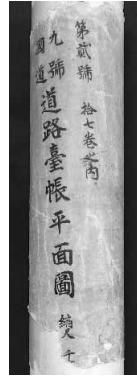 第貳號　拾七卷之內
九號國道
道路臺帳平面圖